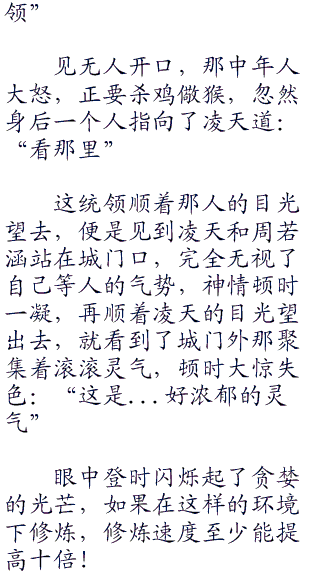 领”
见无人开口，那中年人
大怒，正要杀鸡儆猴，忽然
身后一个人指向了凌天道：
“看那里”
这统领顺着那人的目光
望去，便是见到凌天和周若
涵站在城门口，完全无视了
自己等人的气势，神情顿时
一凝，再顺着凌天的目光望
出去，就看到了城门外那聚
集着滚滚灵气，顿时大惊失
色：“这是...好浓郁的灵
气”
眼中登时闪烁起了贪婪
的光芒，如果在这样的环境
下修炼，修炼速度至少能提
高十倍！